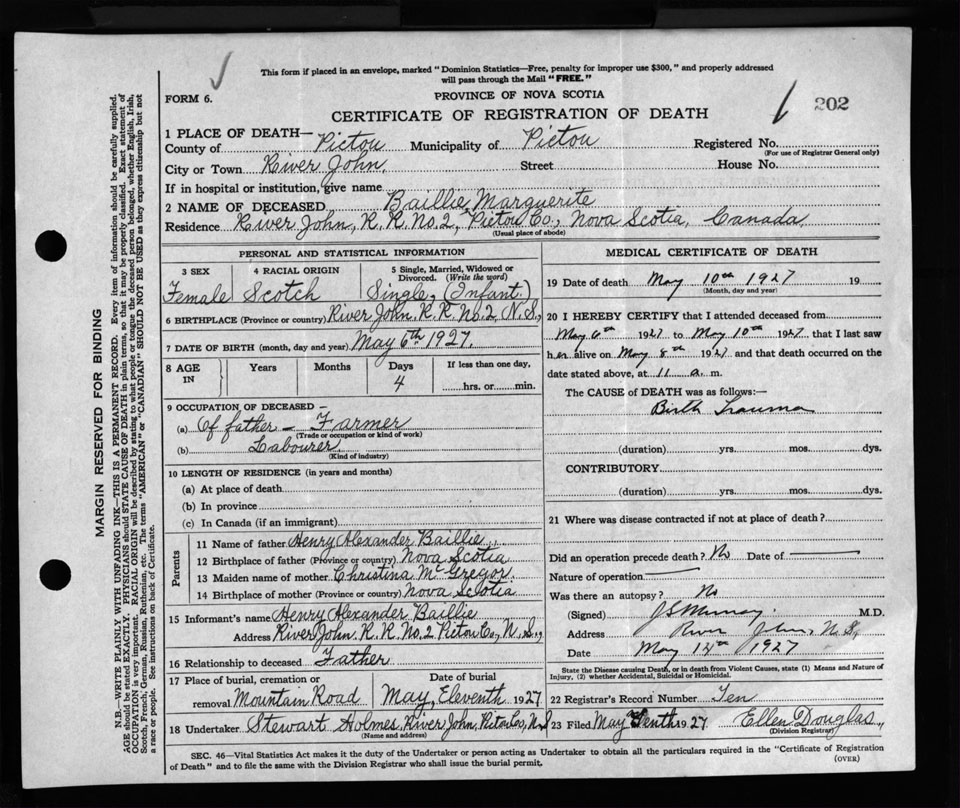 This form if placed in an envelope, marked "Dominion Statistics—Free, penalty for improper use $300," and properly addressed
will pass through the Mail "FREE."
FORM 6.
PROVINCE OF NOVA SCOTIA
202
CERTIFICATE OF REGISTRATION OF DEATH
1 PLACE OF DEATH—
County of Pictou Municipality of Pictou Registered No.
(For use of Registrar General only)
City or Town River John, Street House No.
If in hospital or institution, give name
2 NAME OF DECEASED Baillie, Marguerite
Residence River John, R. R. No. 2, Pictou Co., Nova Scotia, Canada,
(Usual place of abode)
PERSONAL AND STATISTICAL INFORMATION
3 SEX 4 RACIAL ORIGIN 5 Single, Married, Widowed or
Divorced. (Write the word)
Female Scotch Single, (Infant.)
6 BIRTHPLACE (Province or country) River John. R. R. No. 2, N. S.,
7 DATE OF BIRTH (month, day and year) May 6th 1927.
8 AGE IN Years Months Days If less than one day,
4 hrs. or min.
9 OCCUPATION OF DECEASED —
(a) Of father — Farmer
(Trade or occupation or kind of work)
(b) Labourer,
(Kind of industry)
10 LENGTH OF RESIDENCE (in years and months)
(a) At place of death
(b) In province
(c) In Canada (if an immigrant)
Parents
11 Name of father Henry Alexander Baillie,
12 Birthplace of father (Province or country) Nova Scotia
13 Maiden name of mother Christina McGregor.
14 Birthplace of mother (Province or country) Nova Scotia
15 Informant's name Henry Alexander Baillie
Address River John, R. R. No. 2 Pictou Co., N. S.,
16 Relationship to deceased Father
17 Place of burial, cremation or Date of burial
removal Mountain Road May, Eleventh 1927
18 Undertaker Stewart Holmes, River John, Pictou Co., N. S.
(Name and address)
MEDICAL CERTIFICATE OF DEATH
19 Date of death May 10th 1927 19
(Month, day and year)
20 I HEREBY CERTIFY that I attended deceased from
May 6th 1927 to May 10th 1927 that I last saw
her alive on May 8th 1927 and that death occurred on the
date stated above, at 11 a. m.
The CAUSE OF DEATH was as follows:—
Birth Trauma
(duration) yrs. mos. dys.
CONTRIBUTORY
(duration) yrs. mos. dys.
21 Where was disease contracted if not at place of death?
Did an operation precede death? No Date of
Nature of operation
Was there an autopsy? No
(Signed) J S Murray. M.D.
Address River John, N. S,
Date May 12th 1927
State the Disease causing Death, or in death from Violent Causes, state (1) Means and Nature of
Injury, (2) whether Accidental, Suicidal or Homicidal.
22 Registrar's Record Number Ten
23 Filed May Tenth 1927 Ellen Douglas,
(Division Registrar)
SEC. 46—Vital Statistics Act makes it the duty of the Undertaker or person acting as Undertaker to obtain all the particulars required in the "Certificate of Registration
of Death" and to file the same with the Division Registrar who shall issue the burial permit.
(OVER)
MARGIN RESERVED FOR BINDING
N.B.—WRITE PLAINLY WITH UNFADING INK—THIS IS A PERMANENT RECORD. Every item of information should be carefully supplied.
AGE should be stated EXACTLY. PHYSICIANS should STATE CAUSE OF DEATH in plain terms, so that it may be properly classified. Exact statement of
OCCUPATION is very important. RACIAL ORIGIN will be described by stating to what people or tongue the deceased person belonged, whether English, Irish,
Scotch, French, German, Russian, Ruthenian, etc. The terms "AMERICAN" or "CANADIAN" SHOULD NOT BE USED as they express citizenship but not
a race or people. See instructions on back of Certificate.